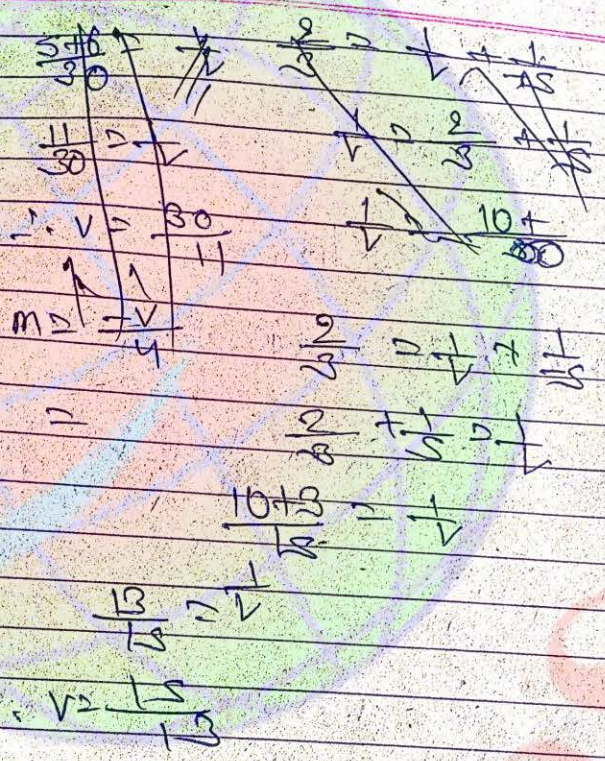 5+6/30 = 1/v
11/30 = 1/v
∴ v = 30/11
m = -v/4
=
2/3 = 1/v + 1/-5
1/v = 2/3 + 1/5
1/v = 10+/30
2/3 = 1/v + 1/-5
2/3 + 1/5 = 1/v
10+3/15 = 1/v
13/15 = 1/v
∴ v = 15/13